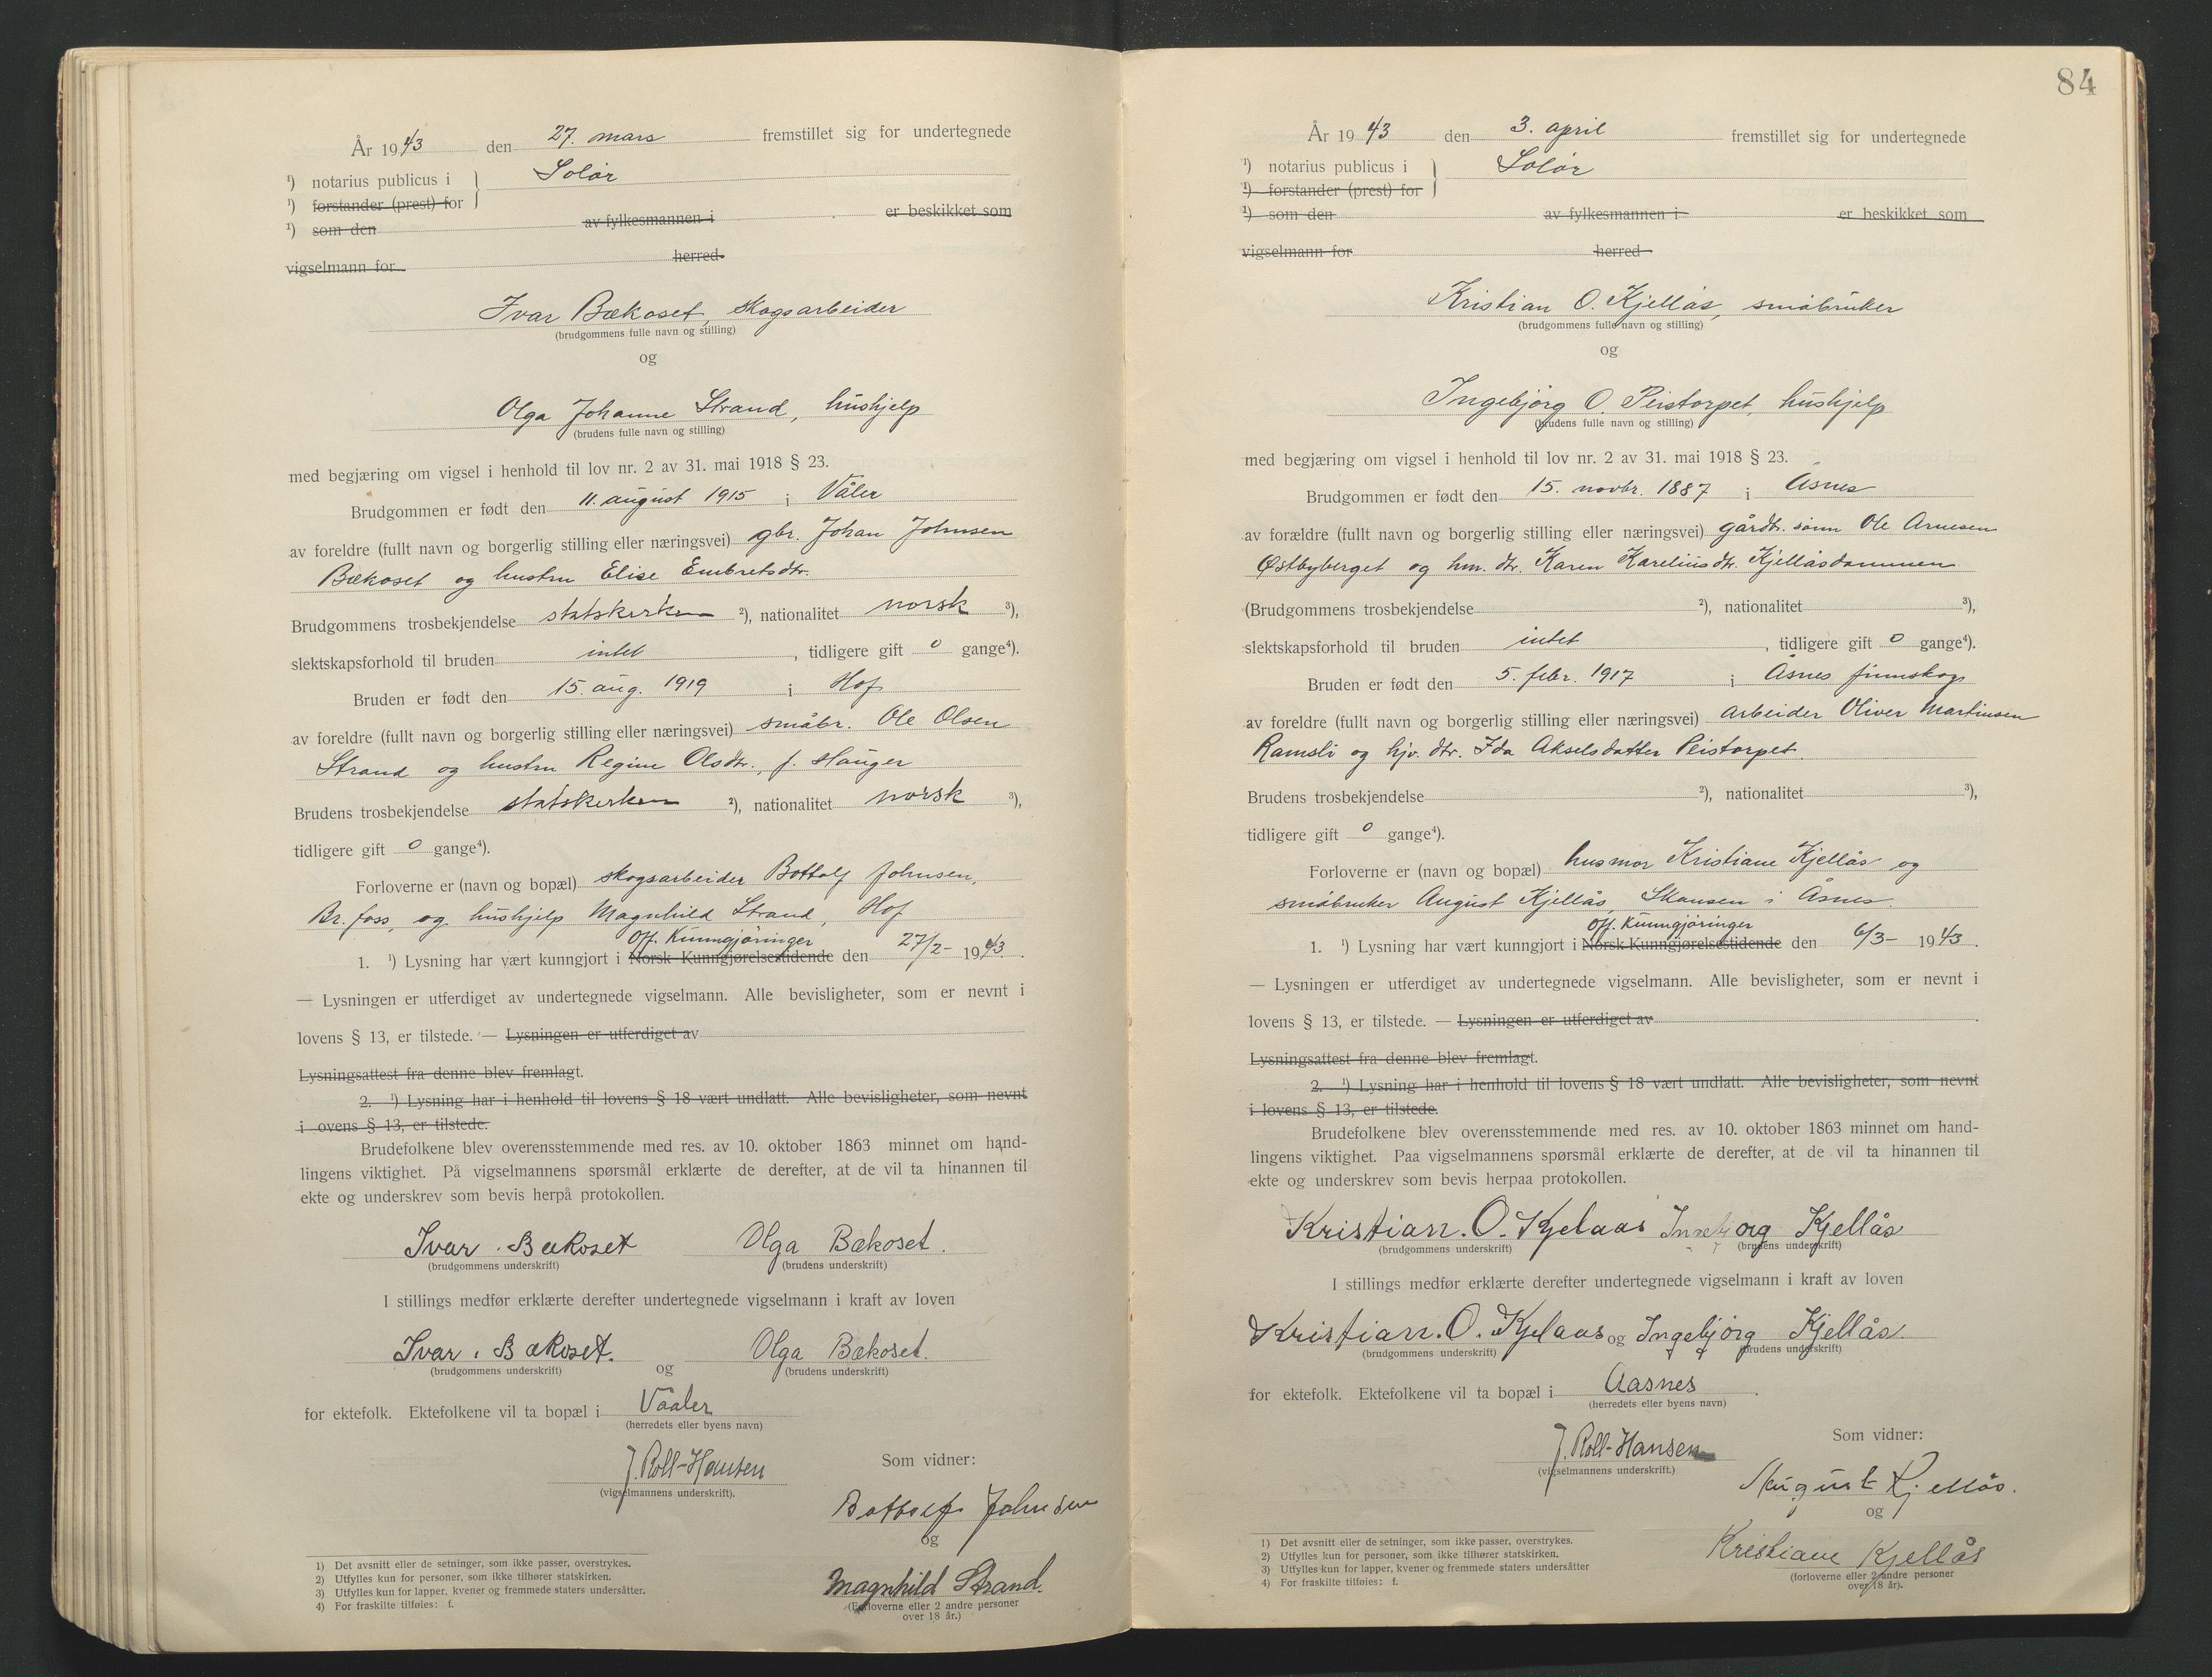 År 1943 den 27. mars fremstillet sig for undertegnede
¹) notarius publicus i Solør
¹) forstander (prest) for
¹) som den av fylkesmannen i er beskikket som
vigselmann for herred
Ivar Bækoset, skogsarbeider
(brudgommens fulle navn og stilling)
og
Olga Johanne Strand, hushjelp
(brudens fulle navn og stilling)
med begjæring om vigsel i henhold til lov nr. 2 av 31. mai 1918 § 23.
Brudgommen er født den 11. august 1915 i Våler
av foreldre (fullt navn og borgerlig stilling eller næringsvei) gbr. Johan Johnsen
Bækoset og hustru Elise Embretsdtr.
Brudgommens trosbekjendelse statskirken ²), nationalitet norsk ³),
slektskapsforhold til bruden intet, tidligere gift 0 gange⁴).
Bruden er født den 15. aug. 1919 i Hof
av foreldre (fullt navn og borgerlig stilling eller næringsvei) småbr. Ole Olsen
Strand og hustru Regine Olsdtr., f. Hauger
Brudens trosbekjendelse statskirken ²), nationalitet norsk ³),
tidligere gift 0 gange⁴).
Forloverne er (navn og bopæl) skogsarbeider Bottolf Johnsen,
Br. foss, og hushjelp Magnhild Strand, Hof
Off. Kunngjøringer
1. ¹) Lysning har vært kunngjort i Norsk Kunngjørelsestidende den 27/2- 1943.
— Lysningen er utferdiget av undertegnede vigselmann. Alle bevisligheter, som er nevnt i
lovens § 13, er tilstede. — Lysningen er utferdiget av
Lysningsattest fra denne blev fremlagt.
2. ¹) Lysning har i henhold til lovens § 18 vært undlatt. Alle bevisligheter, som nevnt
i ovens § 13, er tilstede.
Brudefolkene blev overensstemmende med res. av 10. oktober 1863 minnet om hand-
lingens viktighet. På vigselmannens spørsmål erklærte de derefter, at de vil ta hinannen til
ekte og underskrev som bevis herpå protokollen.
Ivar. Bækoset Olga Bækoset.
(brudgommens underskrift) (brudens underskrift)
I stillings medfør erklærte derefter undertegnede vigselmann i kraft av loven
Ivar. Bækoset. og Olga Bækoset.
(brudgommens underskrift) (brudens underskrift)
for ektefolk. Ektefolkene vil ta bopæl i Vaaler
(herredets eller byens navn)
J. Roll-Hansen
(vigselmannens underskrift).
Som vidner:
Bottolf Johnsen
og
Magnhild Strand.
(Forloverne eller 2 andre personer
over 18 år.)
1) Det avsnitt eller de setninger, som ikke passer, overstrykes.
2) Utfylles kun for personer, som ikke tilhører statskirken.
3) Utfylles kun for lapper, kvener og fremmede staters undersåtter.
4) For fraskilte tilføies: f.
84
År 1943 den 3. april fremstillet sig for undertegnede
¹) notarius publicus i Solør
¹) forstander (prest) for
¹) som den av fylkesmannen i er beskikket som
vigselmann for herred
Kristian O. Kjellås, småbruker
(brudgommens fulle navn og stilling)
og
Ingebjørg O. Peistorpet, hushjelp
(brudens fulle navn og stilling)
med begjæring om vigsel i henhold til lov nr. 2 av 31. mai 1918 § 23.
Brudgommen er født den 15. novbr. 1887 i Åsnes
av forældre (fullt navn og borgerlig stilling eller næringsvei) gårdbr. sønn Ole Arnesen
Østbyberget og hm. dtr. Karen Kareliusdtr. Kjellåsdammen
(Brudgommens trosbekjendelse ²), nationalitet ³),
slektskapsforhold til bruden intet, tidligere gift 0 gange⁴).
Bruden er født den 5. febr. 1917 i Åsnes finnskog
av foreldre (fullt navn og borgerlig stilling eller næringsvei) arbeider Oliver Martinsen
Ramsli og hjv. dtr. Ida Akselsdatter Peistorpet.
Brudens trosbekjendelse ²), nationalitet ³),
tidligere gift 0 gange⁴).
Forloverne er (navn og bopæl) husmor Kristiane Kjellås og
småbruker August Kjellås, Skansen i Åsnes.
Off. Kunngjøringer
1. ¹) Lysning har vært kunngjort i Norsk Kunngjørelsestidende den 6/3- 1943.
— Lysningen er utferdiget av undertegnede vigselmann. Alle bevisligheter, som er nevnt i
lovens § 13, er tilstede. — Lysningen er utferdiget av .
Lysningsattest fra denne blev fremlagt.
2. ¹) Lysning har i henhold til lovens § 18 vært undlatt. Alle bevisligheter, som nevnt
i lovens § 13, er tilstede.
Brudefolkene blev overensstemmende med res. av 10. oktober 1863 minnet om hand-
lingens viktighet. Paa vigselmannens spørsmål erklærte de derefter, at de vil ta hinannen til
ekte og underskrev som bevis herpaa protokollen.
Kristian. O. Kjelaas Ingebjørg Kjellås
(brudgommens underskrift) (brudens underskrift)
I stillings medfør erklærte derefter undertegnede vigselmann i kraft av loven
Kristian. O. Kjelaas og Ingebjørg Kjellås.
(brudgommens underskrift) (brudens underskrift)
for ektefolk. Ektefolkene vil ta bopæl i Aasnes.
(herredets eller byens navn)
J. Roll-Hansen
(vigselmannens underskrift.)
Som vidner:
August Kjellås.
og
Kristiane Kjellås
(forloverne eller 2 andre personer
over 18 år).
1) Det avsnitt eller de setninger, som ikke passer, overstrykes.
2) Utfylles kun for personer, som ikke tilhører statskirken.
3) Utfylles kun for lapper, kvener og fremmede staters undersåtter
4) For fraskilte tilføies: f.